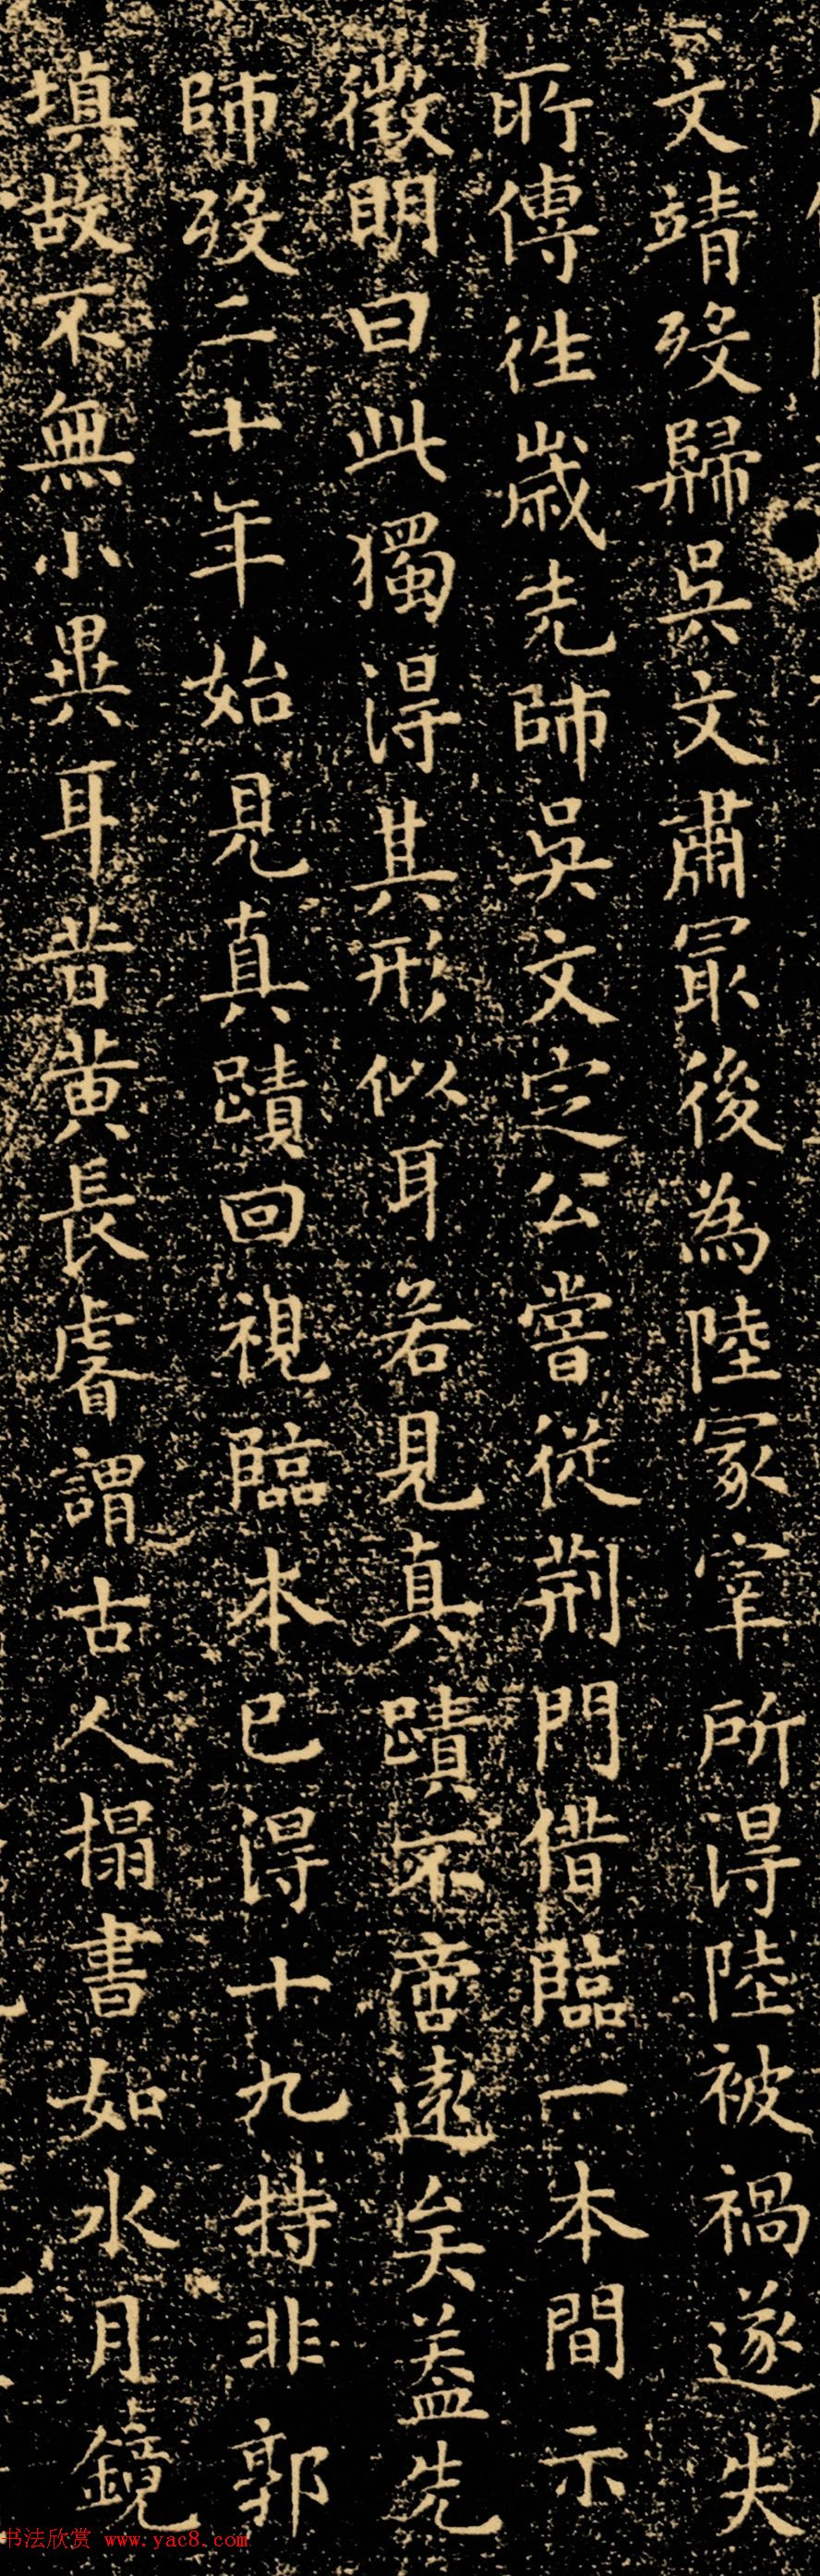 文靖歿歸吳文肅冣後為陸冢宰所得陸被禍遂失
所傳徃歲先師吳文定公嘗從荆門借臨一本間示
徵明曰此獨得其形似耳若見真蹟不啻遠矣葢先
師歿二十年始見真蹟回視臨本已得十九特非郭
填故不無小異耳昔黃長睿謂古人搨書如水月鏡
书法欣赏 www.yac8.com